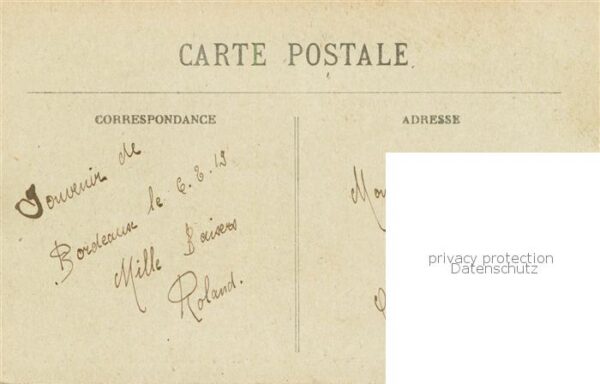 CARTE POSTALE
CORRESPONDANCE
ADRESSE
Souvenir de
Bordeaux le 6.8.13
Mille Baisers
Roland.
privacy protection
Datenschutz